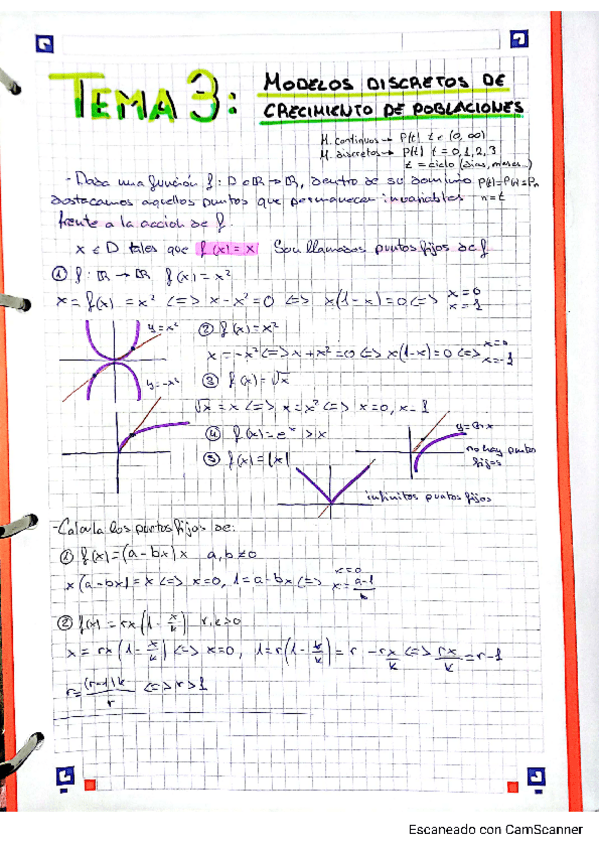 TEMA 3: MODELOS DISCRETOS DE
CRECIMIENTO DE POBLACIONES
M. continuos → P(t) t ∈ (0, ∞)
M. discretos → P(t) t = 0,1,2,3
t = ciclo (dias, meses...)
- Dada una función f: D ⊂ ℝ → ℝ, dentro de su dominio P(t)=P(n)=Pn
destacamos aquellos puntos que permanecen invariables n=t
frente a la accion de f.
x ∈ D tales que f(x) = x Son llamados puntos fijos de f
① f: ℝ → ℝ f(x) = x²
x = f(x) = x² <=> x - x² = 0 <=> x(1-x) = 0 <=> x=0
x=1
y=x²
② f(x) = x²
x = -x² <=> x + x² = 0 <=> x(1-x) = 0 <=> x=0
x=-1
y=-x²
③ f(x) = √x
√x = x <=> x = x² <=> x=0, x=1
④ f(x) = eˣ > x
y=ln x
no hay puntos
fijos
⑤ f(x) = |x|
infinitos puntos fijos
- Calcula los puntos fijos de:
① f(x) = (a - bx) x a, b ≠ 0
x (a - bx) = x <=> x=0, 1 = a - bx <=> x=0
x = a-1/b
② f(x) = rx (1 - x/k) r, k > 0
x = rx (1 - x/k) <=> x=0, 1 = r (1 - x/k) = r - rx/k <=> rx/k = r-1
r = (r-1)k/r <=> r > 1
Escaneado con CamScanner